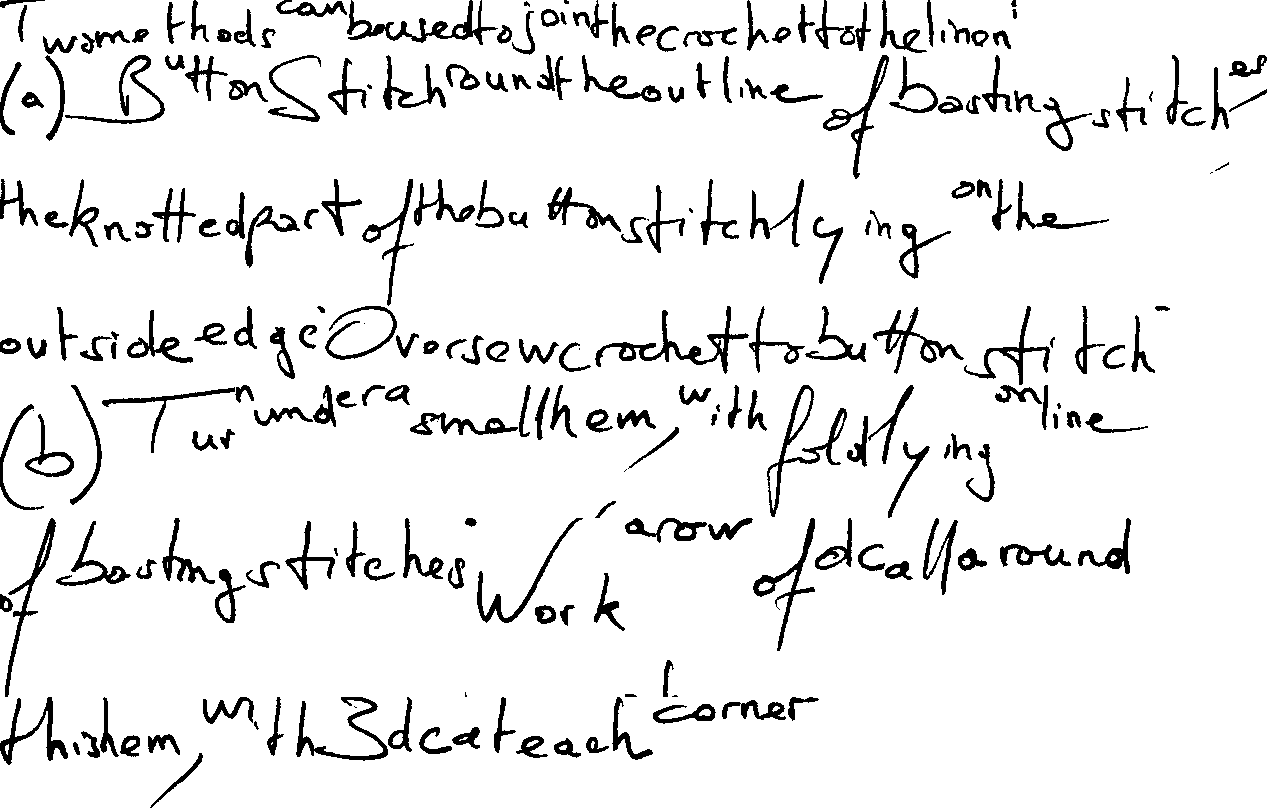 Two methods can be used to join the crochet to the linen:
(a) Button Stitch round the outline of basting stitches
the knotted part of the button stitch lying on the
outside edge. Oversew crochet to button stitch.
(b) Turn under a small hem, with fold lying on line
of basting stitches. Work a row of dc all around
this hem, with 3 dc at each corner